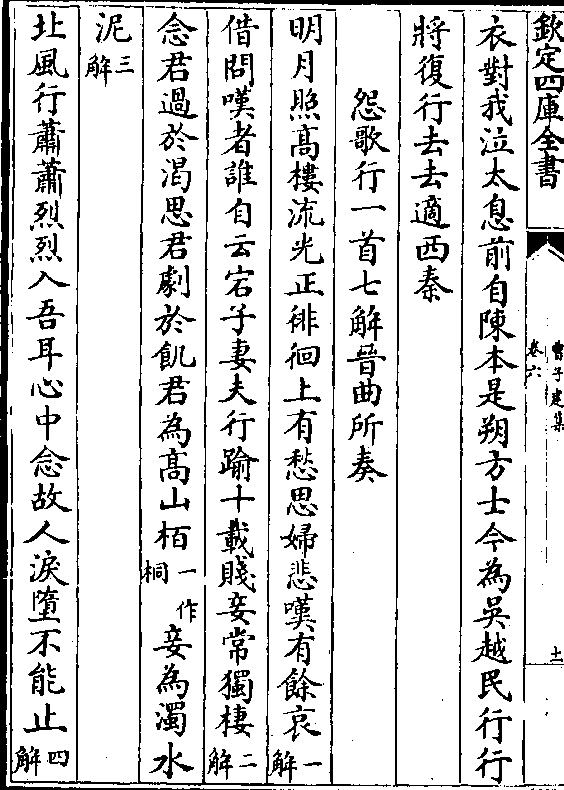 欽定四庫全書
曹子建集
卷六
十一
衣對我泣太息前自陳本是朔方士今為吳越民行行
將復行去去適西秦
怨歌行一首七解晉曲所奏
明月照高樓流光正徘徊上有愁思婦悲嘆有餘哀一解
借問嘆者誰自云宕子妻夫行踰十載賤妾常獨棲二解
念君過於渴思君劇於飢君為高山栢一作桐妾為濁水
泥三解
北風行蕭蕭烈烈入吾耳心中念故人淚墮不能止四解